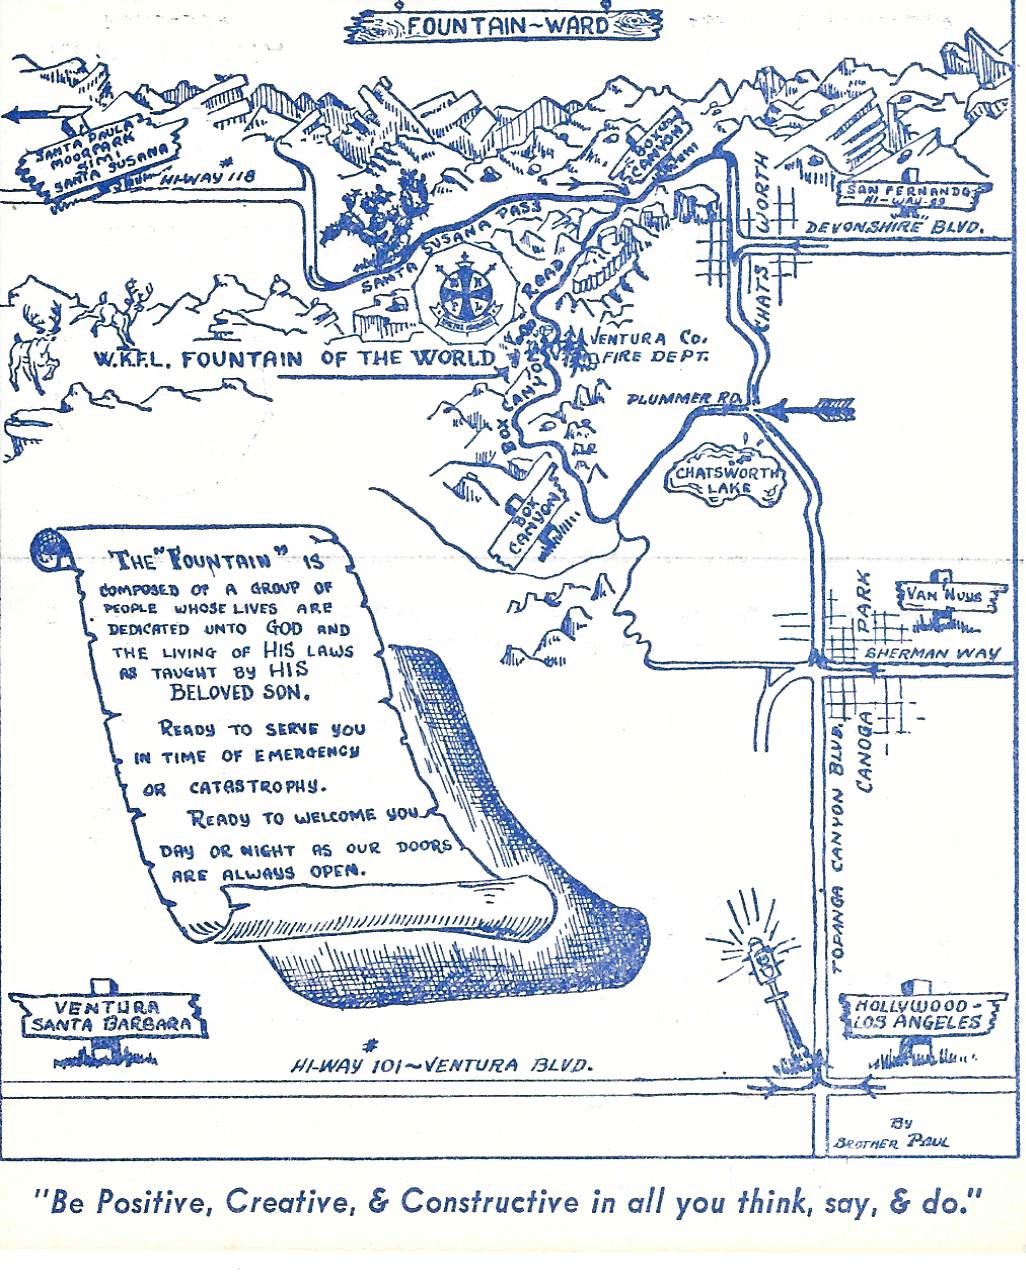 FOUNTAIN~WARD
SANTA PAULA
MOORPARK
SIMI
SANTA SUSANA
#
HI-WAY 118
BOX
CANYON
WORTH
SAN FERNANDO
HI-WAY-99
DEVONSHIRE BLVD.
SANTA SUSANA PASS
CHATS
BOX CANYON ROAD
VENTURA CO.
FIRE DEPT.
W.K.F.L. FOUNTAIN OF THE WORLD
PLUMMER RD.
CHATSWORTH
LAKE
BOX
CANYON
THE "FOUNTAIN" IS
COMPOSED OF A GROUP OF
PEOPLE WHOSE LIVES ARE
DEDICATED UNTO GOD AND
THE LIVING OF HIS LAWS
AS TAUGHT BY HIS
BELOVED SON.
READY TO SERVE YOU
IN TIME OF EMERGENCY
OR CATASTROPHY.
READY TO WELCOME YOU
DAY OR NIGHT AS OUR DOORS
ARE ALWAYS OPEN.
PARK
VAN NUYS
SHERMAN WAY
CANOGA
TOPANGA CANYON BLVD.
VENTURA
SANTA BARBARA
HOLLYWOOD-
LOS ANGELES
#
HI-WAY 101~VENTURA BLVD.
By
BROTHER PAUL
"Be Positive, Creative, & Constructive in all you think, say, & do."